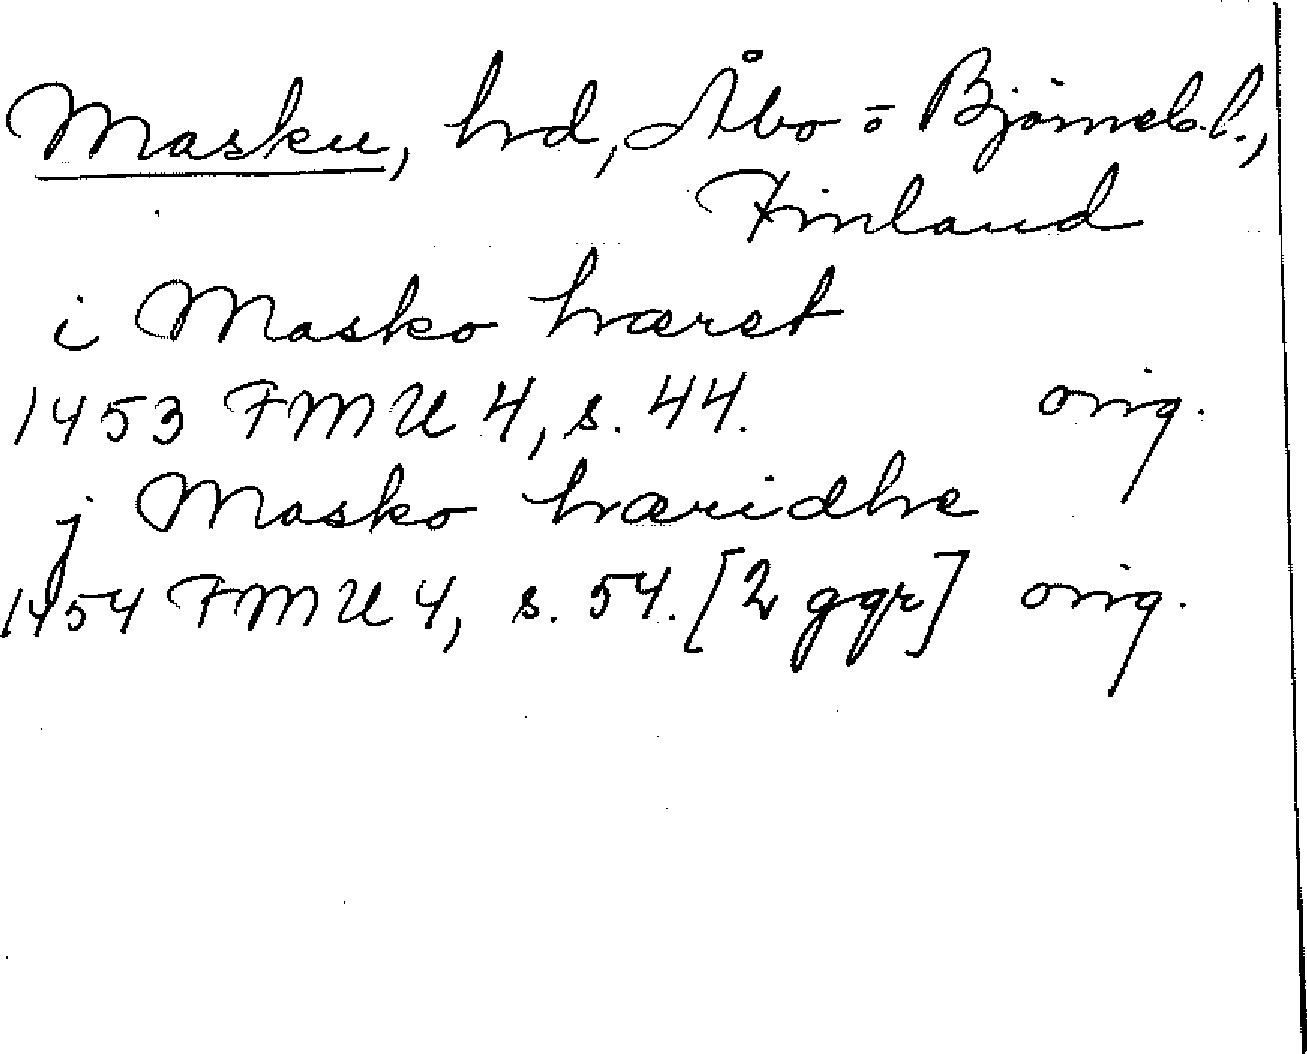 Masku, hd, Åbo o Björneb. l.,
Finland
i Masko hæret
1453 FMU 4, s. 44. orig.
j Masko hæridhe
1454 FMU 4, s. 54. [2 ggr] orig.